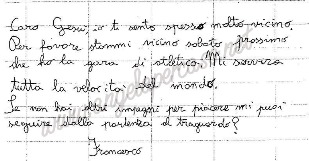 Caro Gesù, io ti sento spesso molto vicino.
Per favore stammi vicino sabato prossimo
che ho la gara di atletica. Mi servirà
tutta la velocità del mondo.
Se non hai altri impegni per piacere mi puoi
seguire dalla partenza al traguardo?
Francesco